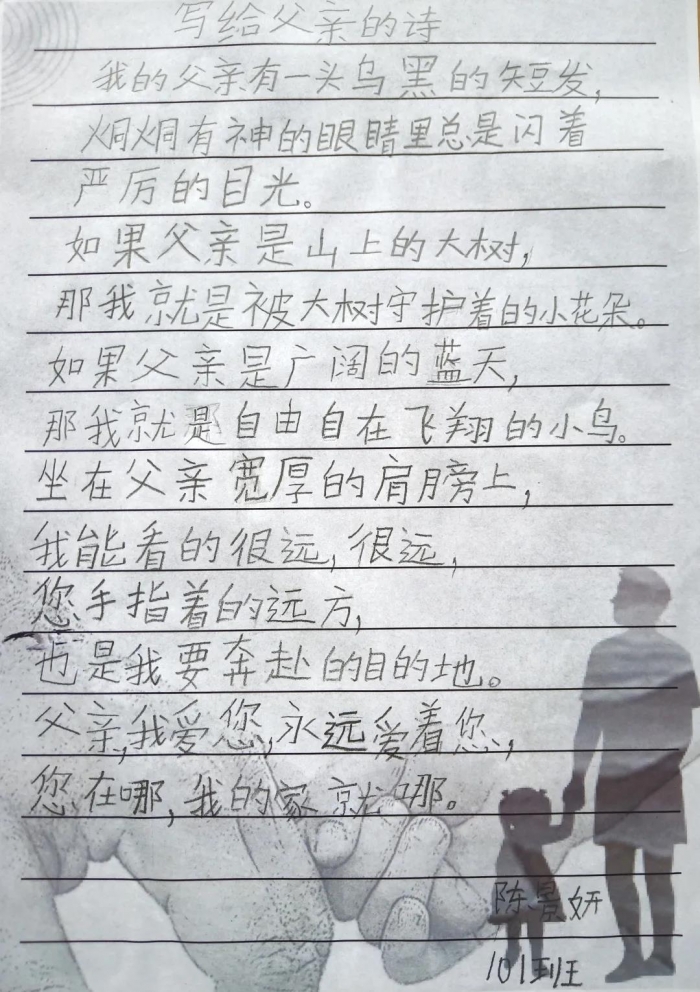 写给父亲的诗
我的父亲有一头乌黑的短发,
炯炯有神的眼睛里总是闪着
严厉的目光。
如果父亲是山上的大树,
那我就是被大树守护着的小花朵。
如果父亲是广阔的蓝天,
那我就是自由自在飞翔的小鸟。
坐在父亲宽厚的肩膀上,
我能看的很远,很远,
您手指着的远方,
也是我要奔赴的目的地。
父亲,我爱您,永远爱着您,
您在哪,我的家就哪。
陈景妍
101班